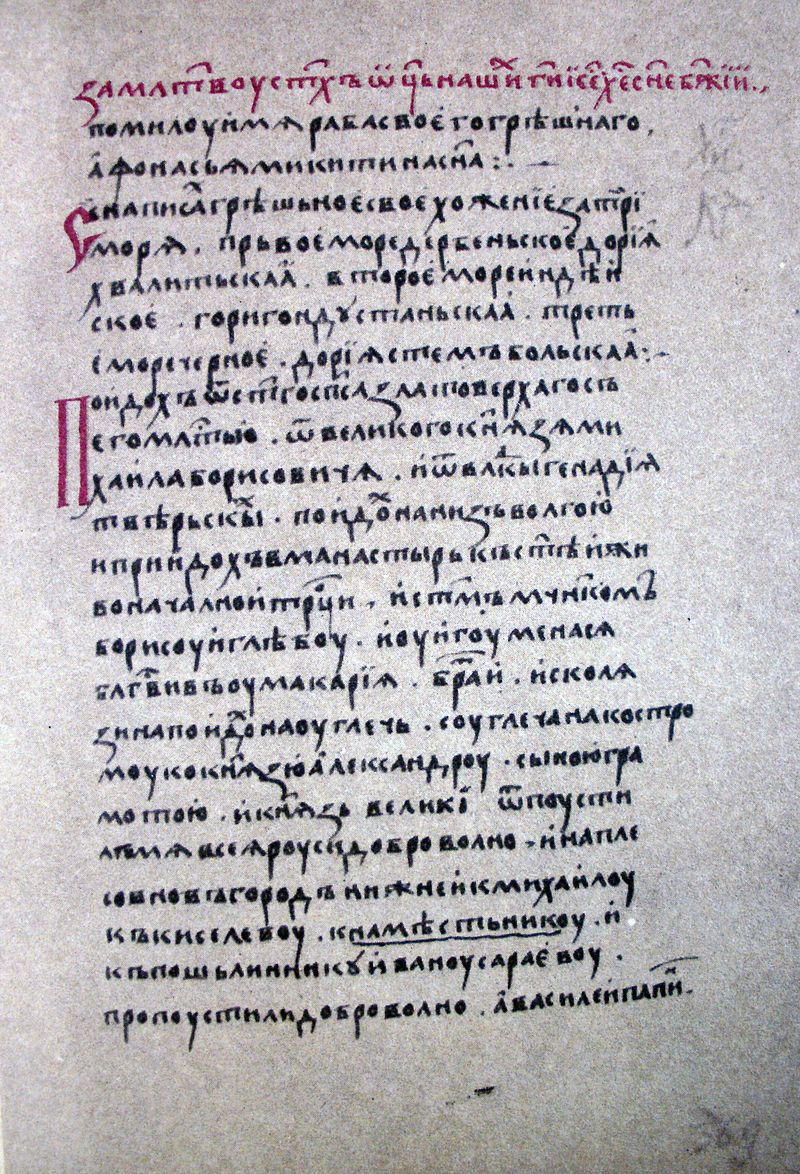 за млт҃воу ст҃хъ ѿц҃ь наши҃ ги҃ іс҃е хе҃ сн҃е бж҃ій.,
помилоуй мѧ раба своего грѣшнаго,
афонасьѧ микитина сн҃а :. —
Се написа грѣшьное свое хоженіе за три
морѧ . прьвое море дербеньское дорїѧ
хвалитьскаа . второе море индѣй
ское . горигондѹстаньскаа . треть
е море черное . дорїѧ стемъбольскаа :.
Поидохъ ѿ ст҃го сп҃са златоверхаго съ
его млт҃ью . ѿ великого кн҃ѧзѧ ми
хаила борисовичѧ . и ѿ влк҃ы генадїѧ
твѣрьскы . поидо на низъ волгою
и приидохъ в манастырь къ ст҃ѣй жи
воначалной трц҃и , и ст҃мъ мч҃нкомъ
борисоу и глѣбоу . и оу игоумена сѧ
блг҃вивъ оу макарїѧ . бра҃тіи . и с колѧ
зина поидо на оуглечь . с оуглеча на костро
моу ко кн҃ѧзю александроу . с ыною гра
мотою . и кн҃ѧзь великі ѿпоусти
лъ мѧ всеѧ роуси добровolно . и на пле
со в новъгородъ нижней к михайлоу
къ киселевоу . к намѣстьникоу . и
къ пошьлинникѹ иваноу сараевоу .
пропоустили доброволно . а василей папи҃н .
369